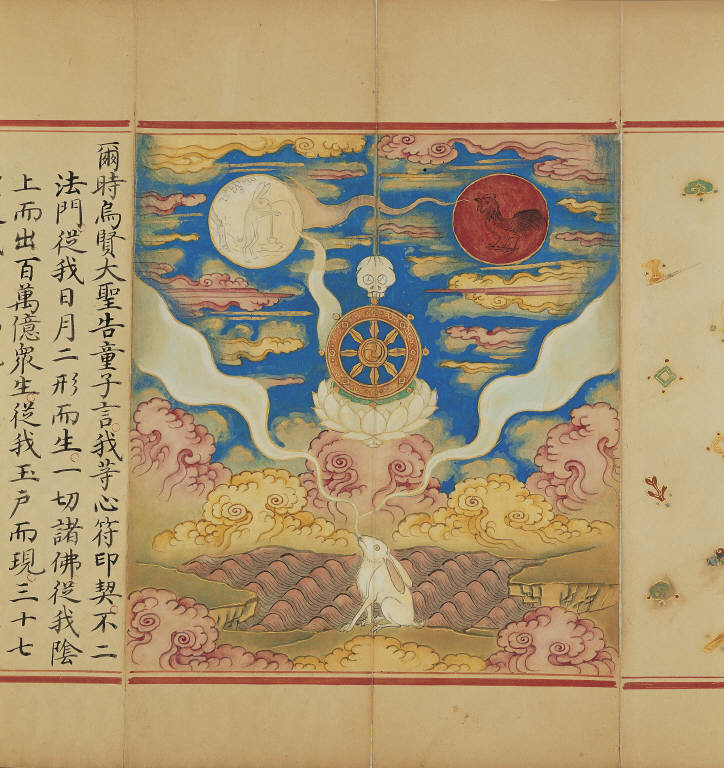 爾時烏賢大聖告童子言。我䒭心符印契。不二
法門。從我日月二形而生。一切諸佛從我陰
上而出百萬億衆生。從我玉戶而現。三十七